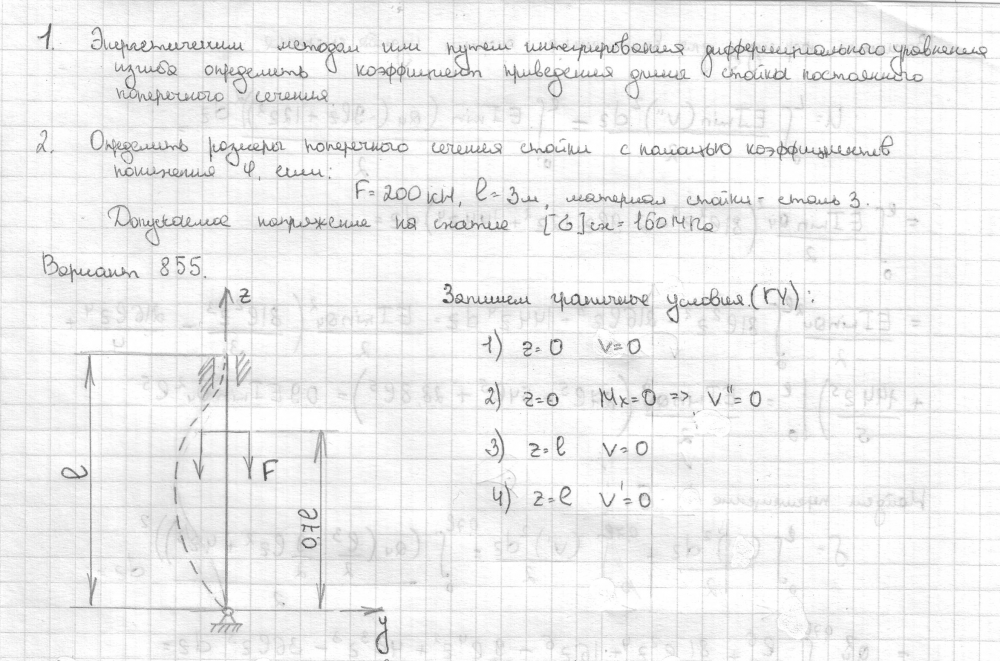 1. Энергетическим методом или путем интегрирования дифференциального уравнения
изгиба определить коэффициент приведения длины стойки постоянного
поперечного сечения.
2. Определить размеры поперечного сечения стойки с помощью коэффициентов
понижения φ, если:
F=200кН, l=3м, материал стойки - сталь 3.
Допускаемое напряжение на сжатие [σ]сж=160МПа
Вариант 855.
z
Запишем граничные условия (ГУ):
1) z=0 v=0
2) z=0 Mx=0 => v''=0
3) z=l v=0
4) z=l v'=0
F
l
0,7l
y